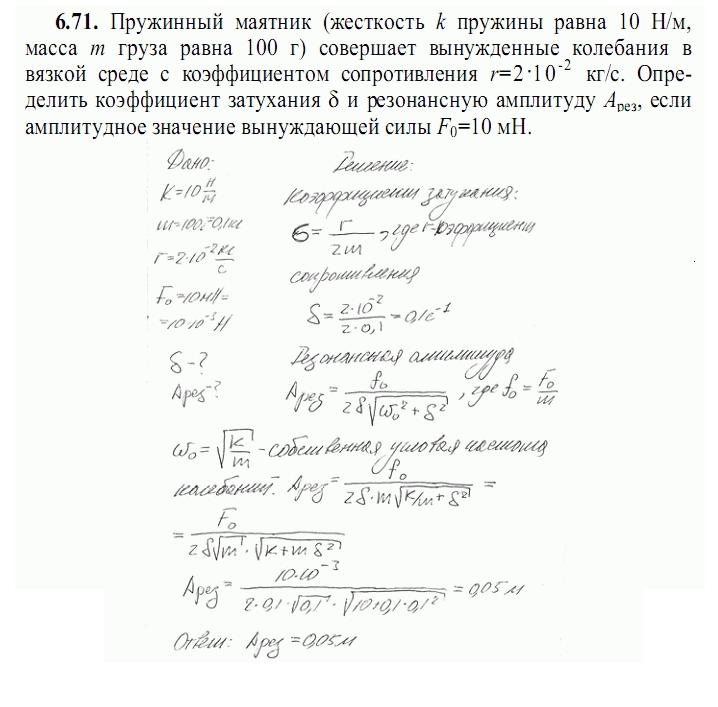 6.71. Пружинный маятник (жесткость k пружины равна 10 Н/м,
масса m груза равна 100 г) совершает вынужденные колебания в
вязкой среде с коэффициентом сопротивления r=2·10⁻² кг/с. Опре-
делить коэффициент затухания δ и резонансную амплитуду Aрез, если
амплитудное значение вынуждающей силы F₀=10 мН.
Дано:
K=10 Н/м
m=100г=0,1кг
r=2·10⁻² кг/с
F₀=10мН=
=10·10⁻³ Н
δ-?
Aрез-?
Решение:
Коэффициент затухания:
б = r/2m, где r-коэффициент
сопротивления
δ = 2·10⁻²/2·0,1 = 0,1с⁻¹
Резонансная амплитуда
Aрез = f₀/2δ√(ω₀²+δ²), где f₀ = F₀/m
ω₀ = √(k/m) - собственная угловая частота
колебаний. Aрез = f₀/2δ·m√(k/m+δ²) =
= F₀/2δ√m·√(k+mδ²)
Aрез = 10·10⁻³/2·0,1·√0,1·√(10+0,1·0,1²) = 0,05м
Ответ: Aрез=0,05м